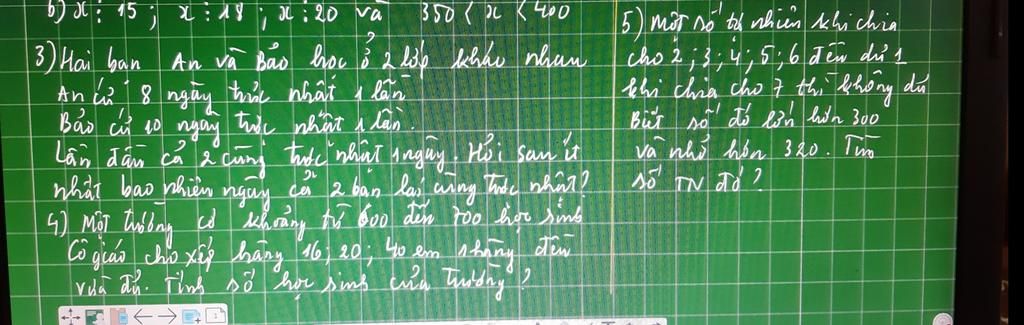 b) x ⋮ 15 ; x ⋮ 18 ; x ⋮ 20 và 350 < x < 400
3) Hai bạn An và Bảo học ở 2 lớp khác nhau
An cứ 8 ngày trực nhật 1 lần
Bảo cứ 10 ngày trực nhật 1 lần.
Lần đầu cả 2 cùng trực nhật 1 ngày. Hỏi sau ít
nhất bao nhiêu ngày cả 2 bạn lại cùng trực nhật?
4) Một trường có khoảng từ 600 đến 700 học sinh
Cô giáo cho xếp hàng 16 ; 20 ; 40 em 1 hàng đều
vừa đủ. Tính số học sinh của trường?
5) Một số tự nhiên khi chia
cho 2 ; 3 ; 4 ; 5 ; 6 đều dư 1
khi chia cho 7 thì không dư
Biết số đó lớn hơn 300
và nhỏ hơn 320. Tìm
số TN đó?